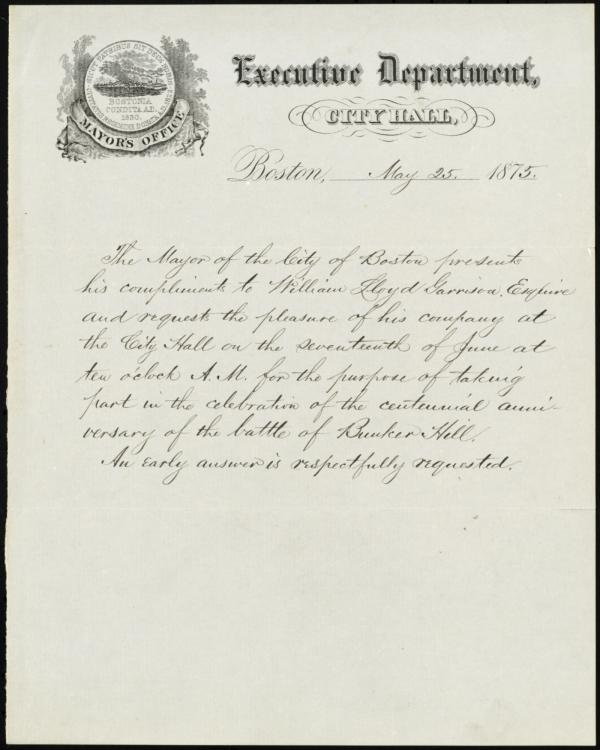 SICUT PATRIBUS SIT DEUS NOBIS
BOSTONIA
CONDITA A.D.
1630.
MAYOR'S OFFICE
Executive Department,
CITY HALL,
Boston, May 25. 1875.
The Mayor of the City of Boston presents
his compliments to William Lloyd Garrison, Esquire
and requests the pleasure of his company at
the City Hall on the seventeenth of June at
ten o'clock A.M. for the purpose of taking
part in the celebration of the centennial anni-
versary of the battle of Bunker Hill.
An early answer is respectfully requested.